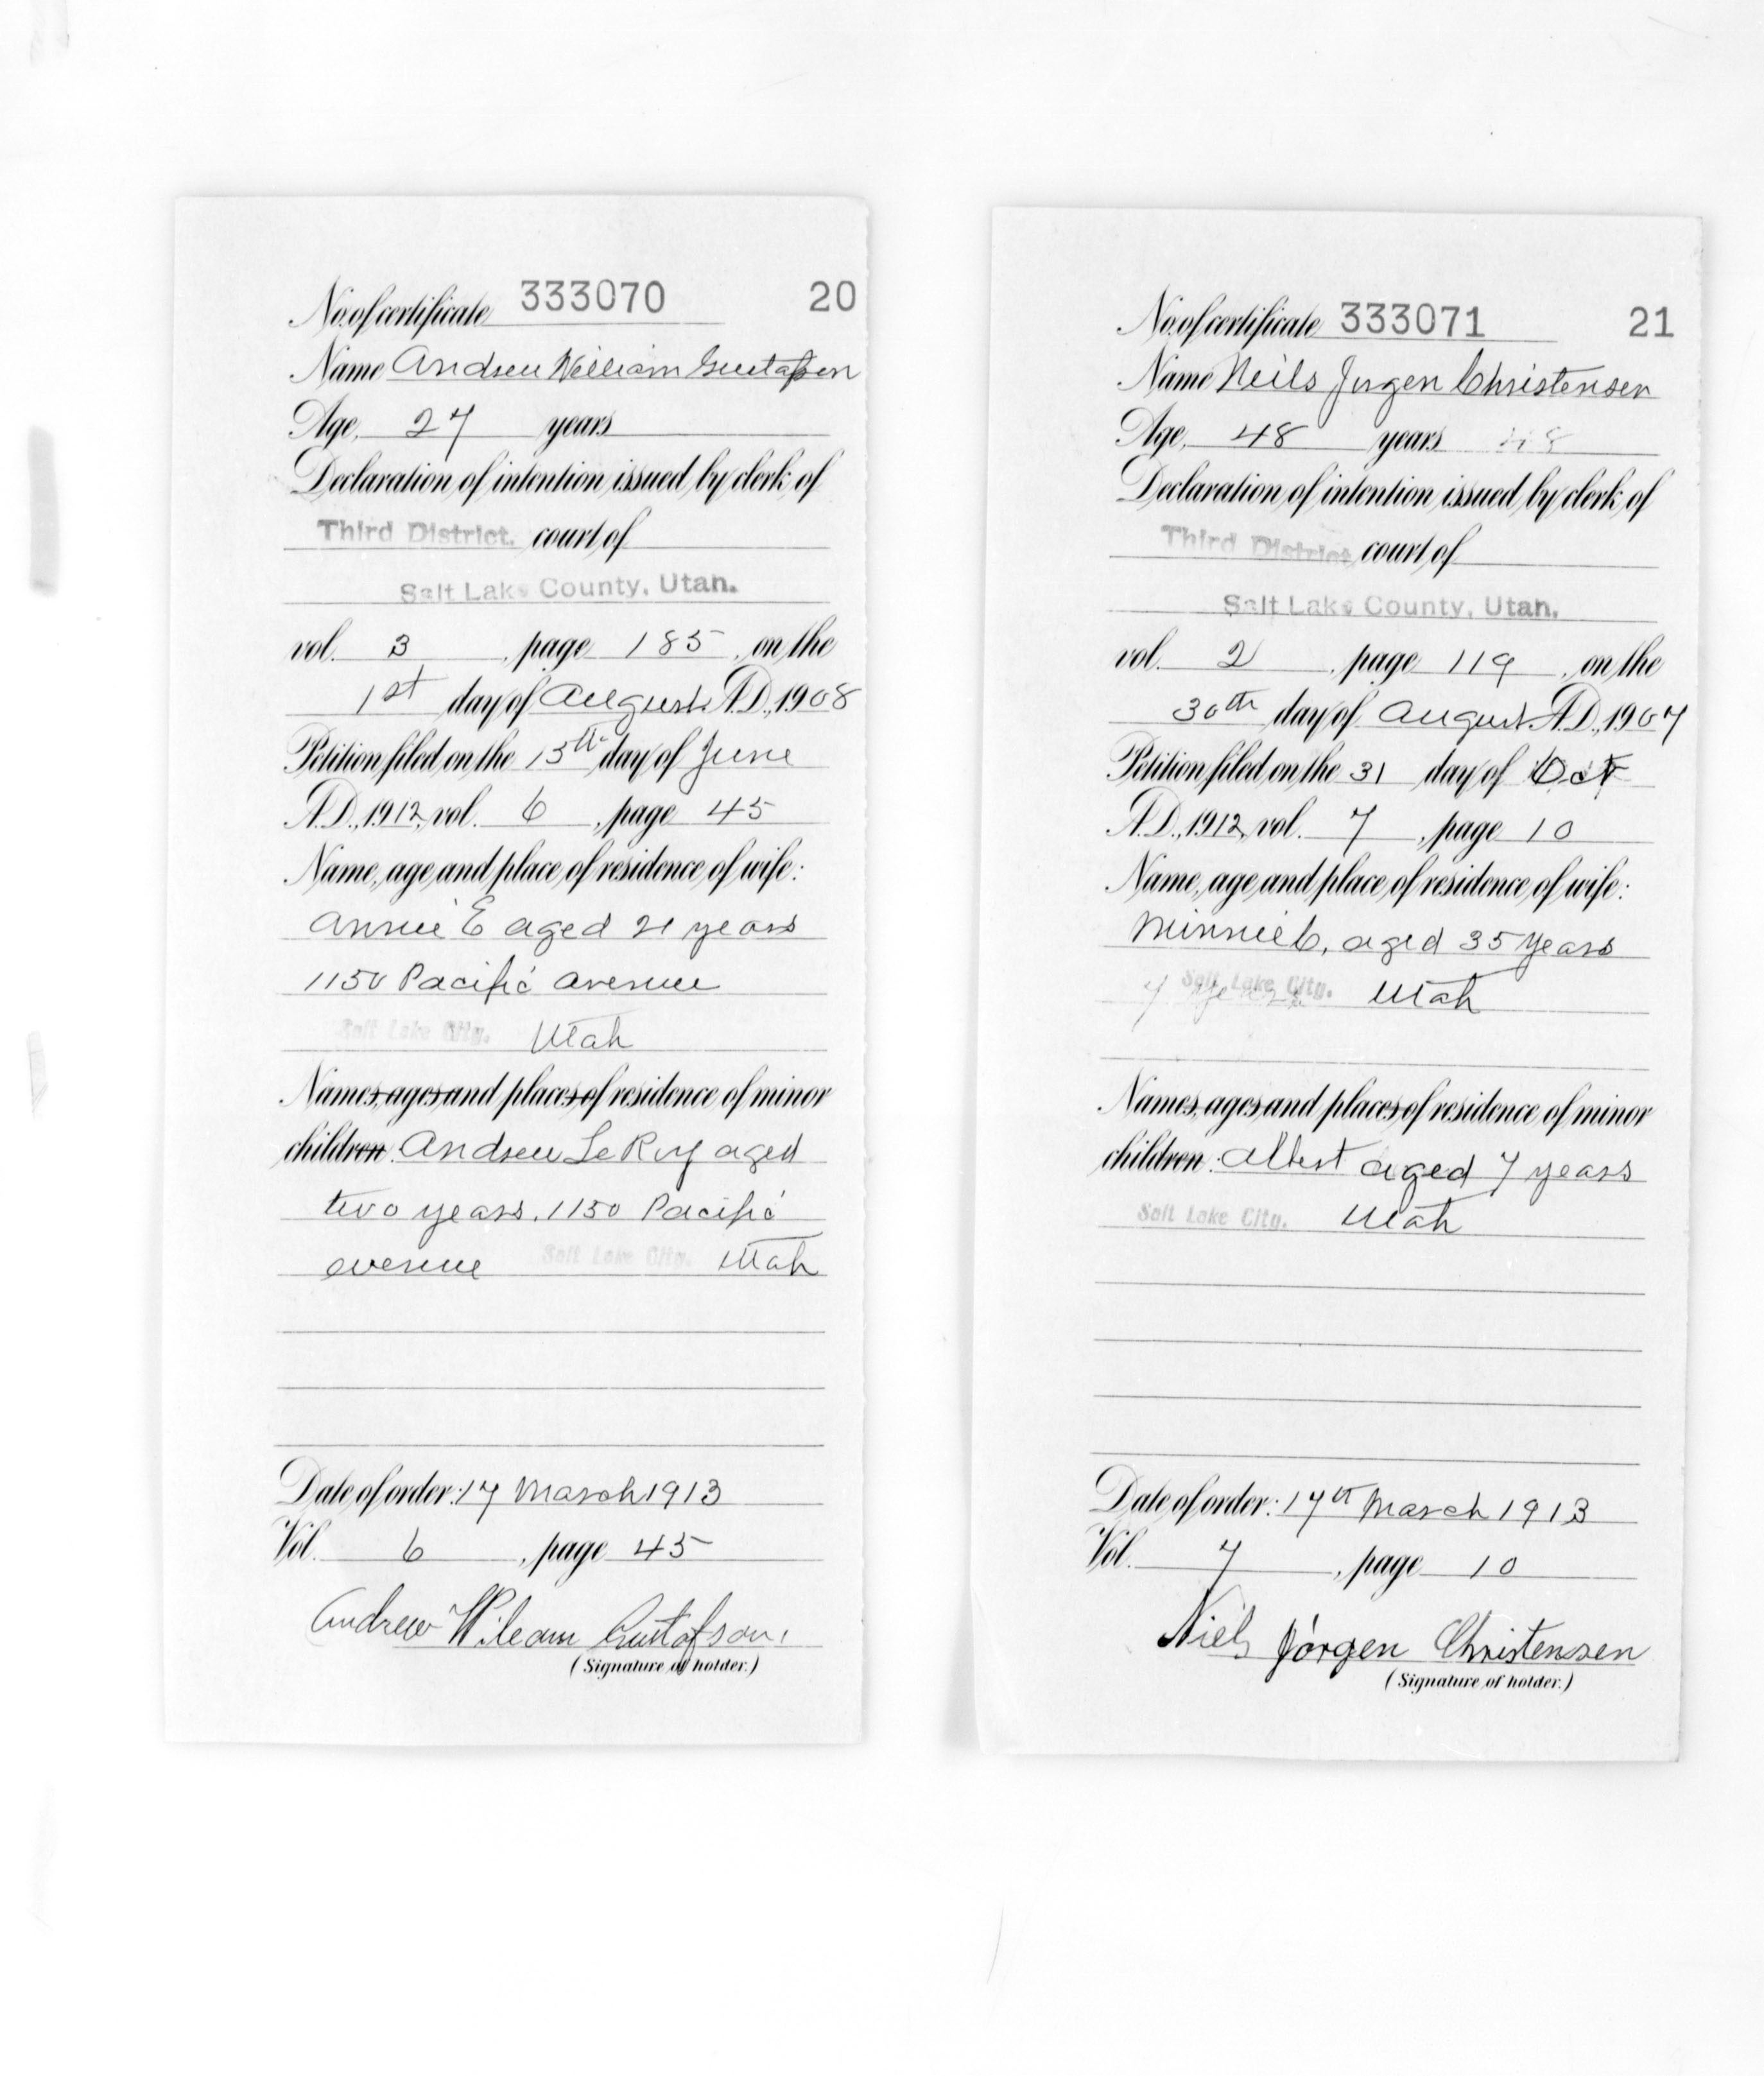 No. of certificate 333070 20
Name Andrew William Gustafson
Age, 27 years
Declaration of intention issued by clerk of
Third District. court of
Salt Lake County, Utah.
vol. 3, page 185, on the
1st day of August A.D., 1908
Petition filed on the 15th day of June
A.D., 1912, vol. 6, page 45
Name, age and place of residence of wife:
Annie E aged 21 years
1150 Pacific avenue
Salt Lake City. Utah
Names, ages and places of residence of minor
children. Andrew LeRoy aged
two years. 1150 Pacific
avenue Salt Lake City. Utah
Date of order: 17 March 1913
Vol. 6, page 45
Andrew Wileam Gustafson.
(Signature of holder.)
No. of certificate 333071 21
Name Neils Jurgen Christensen
Age, 48 years 48
Declaration of intention issued by clerk of
Third District court of
Salt Lake County, Utah.
vol. 2, page 119, on the
30th day of August A.D., 1907
Petition filed on the 31 day of Oct
A.D., 1912, vol. 7, page 10
Name, age and place of residence of wife:
Minnie C. aged 35 years
7 years Salt Lake City. Utah
Names, ages and places of residence of minor
children: Albert aged 7 years
Salt Lake City. Utah
Date of order: 17th March 1913
Vol. 7, page 10
Niels Jörgen Christensen
(Signature of holder.)